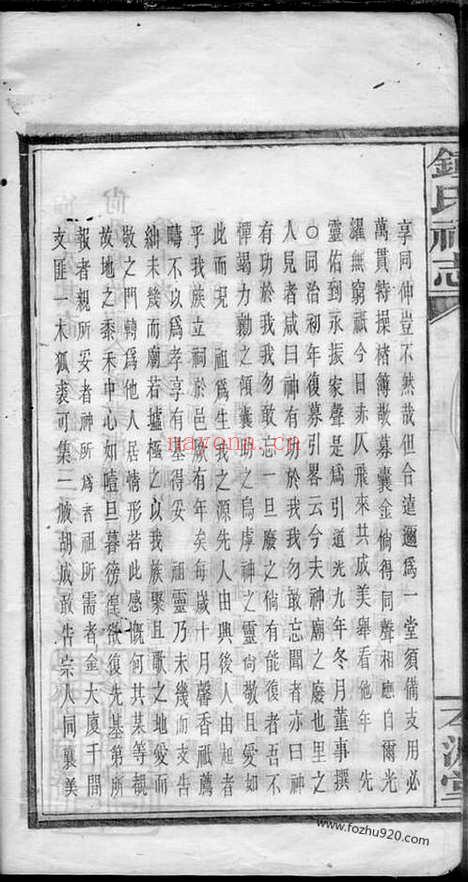 鍾氏祠志
享同伸豈不然哉但合遠邇爲一堂須備支用必
萬貫特操楮簿敬募囊金倘得同聲相應自爾光
耀無窮祇今日赤仄飛來共成美舉看他年　先
靈佑到永振家聲是爲引道光九年冬月董事撰
○同治初年復募引畧云今夫神廟之廢也里之
人見者咸曰神有功於我我勿敢忘聞者亦曰神
有功於我我勿敢忘一旦廢之倘有能復者吾不
憚竭力勷之傾囊助之烏虖神之靈尚敬且愛如
此而況　祖爲生我之源先人由興後人由起者
乎我族立祠於邑厥有年矣每歲十月馨香祇薦
疇不以爲孝享有基得妥　祖靈乃未幾而支告
紬未幾而廟若墟極之以我族聚且歌之地愛而
敬之門轉爲他人居情形若此感慨何其某等覩
故地之黍禾中心如噎旦暮徬徨欲復先基第所
報者親所妥者神所爲者祖所需者金大廈千間
支匪一木狐裘可集三
成敢
宗人同襄美
本源堂
nayona.cn
www.fozhu920.com